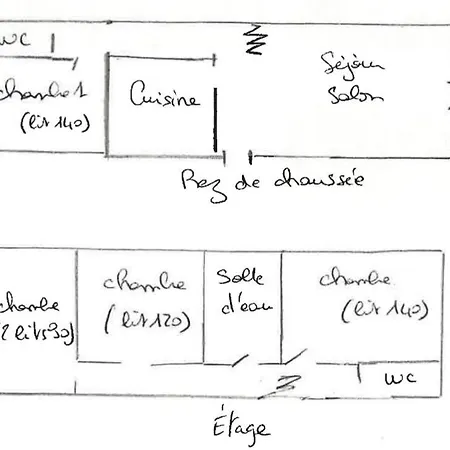 WC
chambre 1
(lit 140)
Cuisine
Séjour
Salon
Rez de chaussée
chambre
2 lits 90)
chambre
(lit 120)
Salle
d'eau
chambre
(lit 140)
WC
Étage